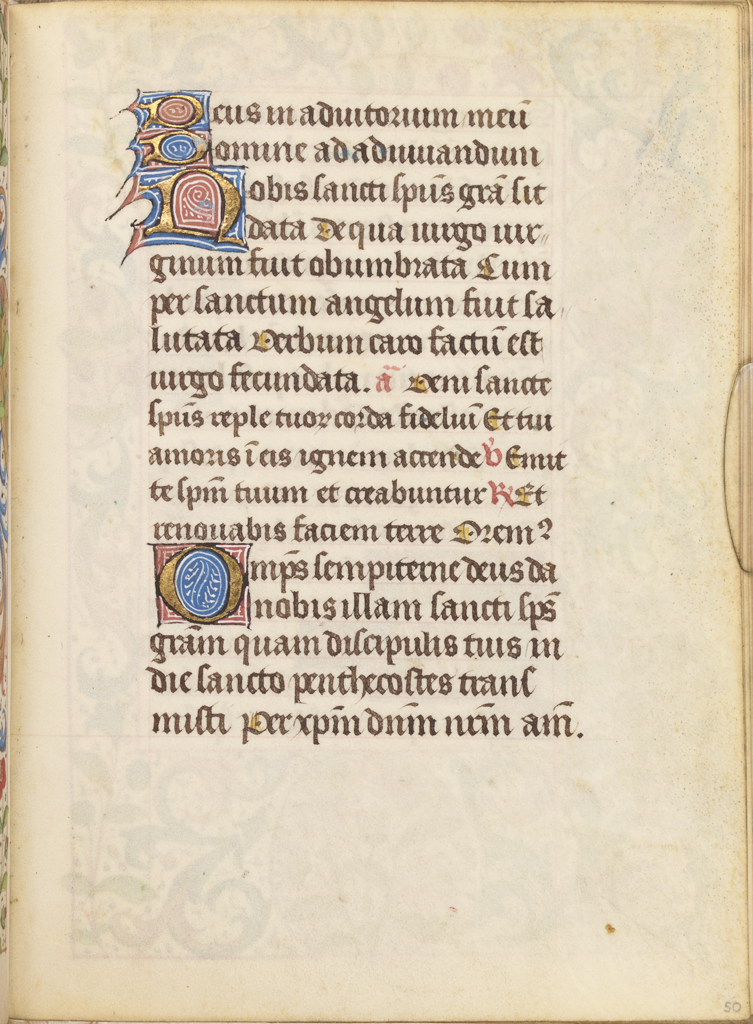 Deus in adiutorium meū
Domine ad adiuuandum
Nobis sancti spūs grā sit
data De qua uirgo uir
ginum fuit obumbrata Cum
per sanctum angelum fuit sa
lutata Verbum caro factū est
uirgo fecundata. ā Veni sancte
spūs reple tuoꝝ corda fideliū Et tui
amoris ī eis ignem accende ℣ Emit
te spm̄ tuum et creabuntur ℟ Et
renouabis faciem terre Orem᾽
Omps̄ sempiterne deus da
nobis illam sancti sps̄
grām quam discipulis tuis in
die sancto penthecostes trans
misti Per xpm̄ dnm̄ nrm̄ am̄.
50